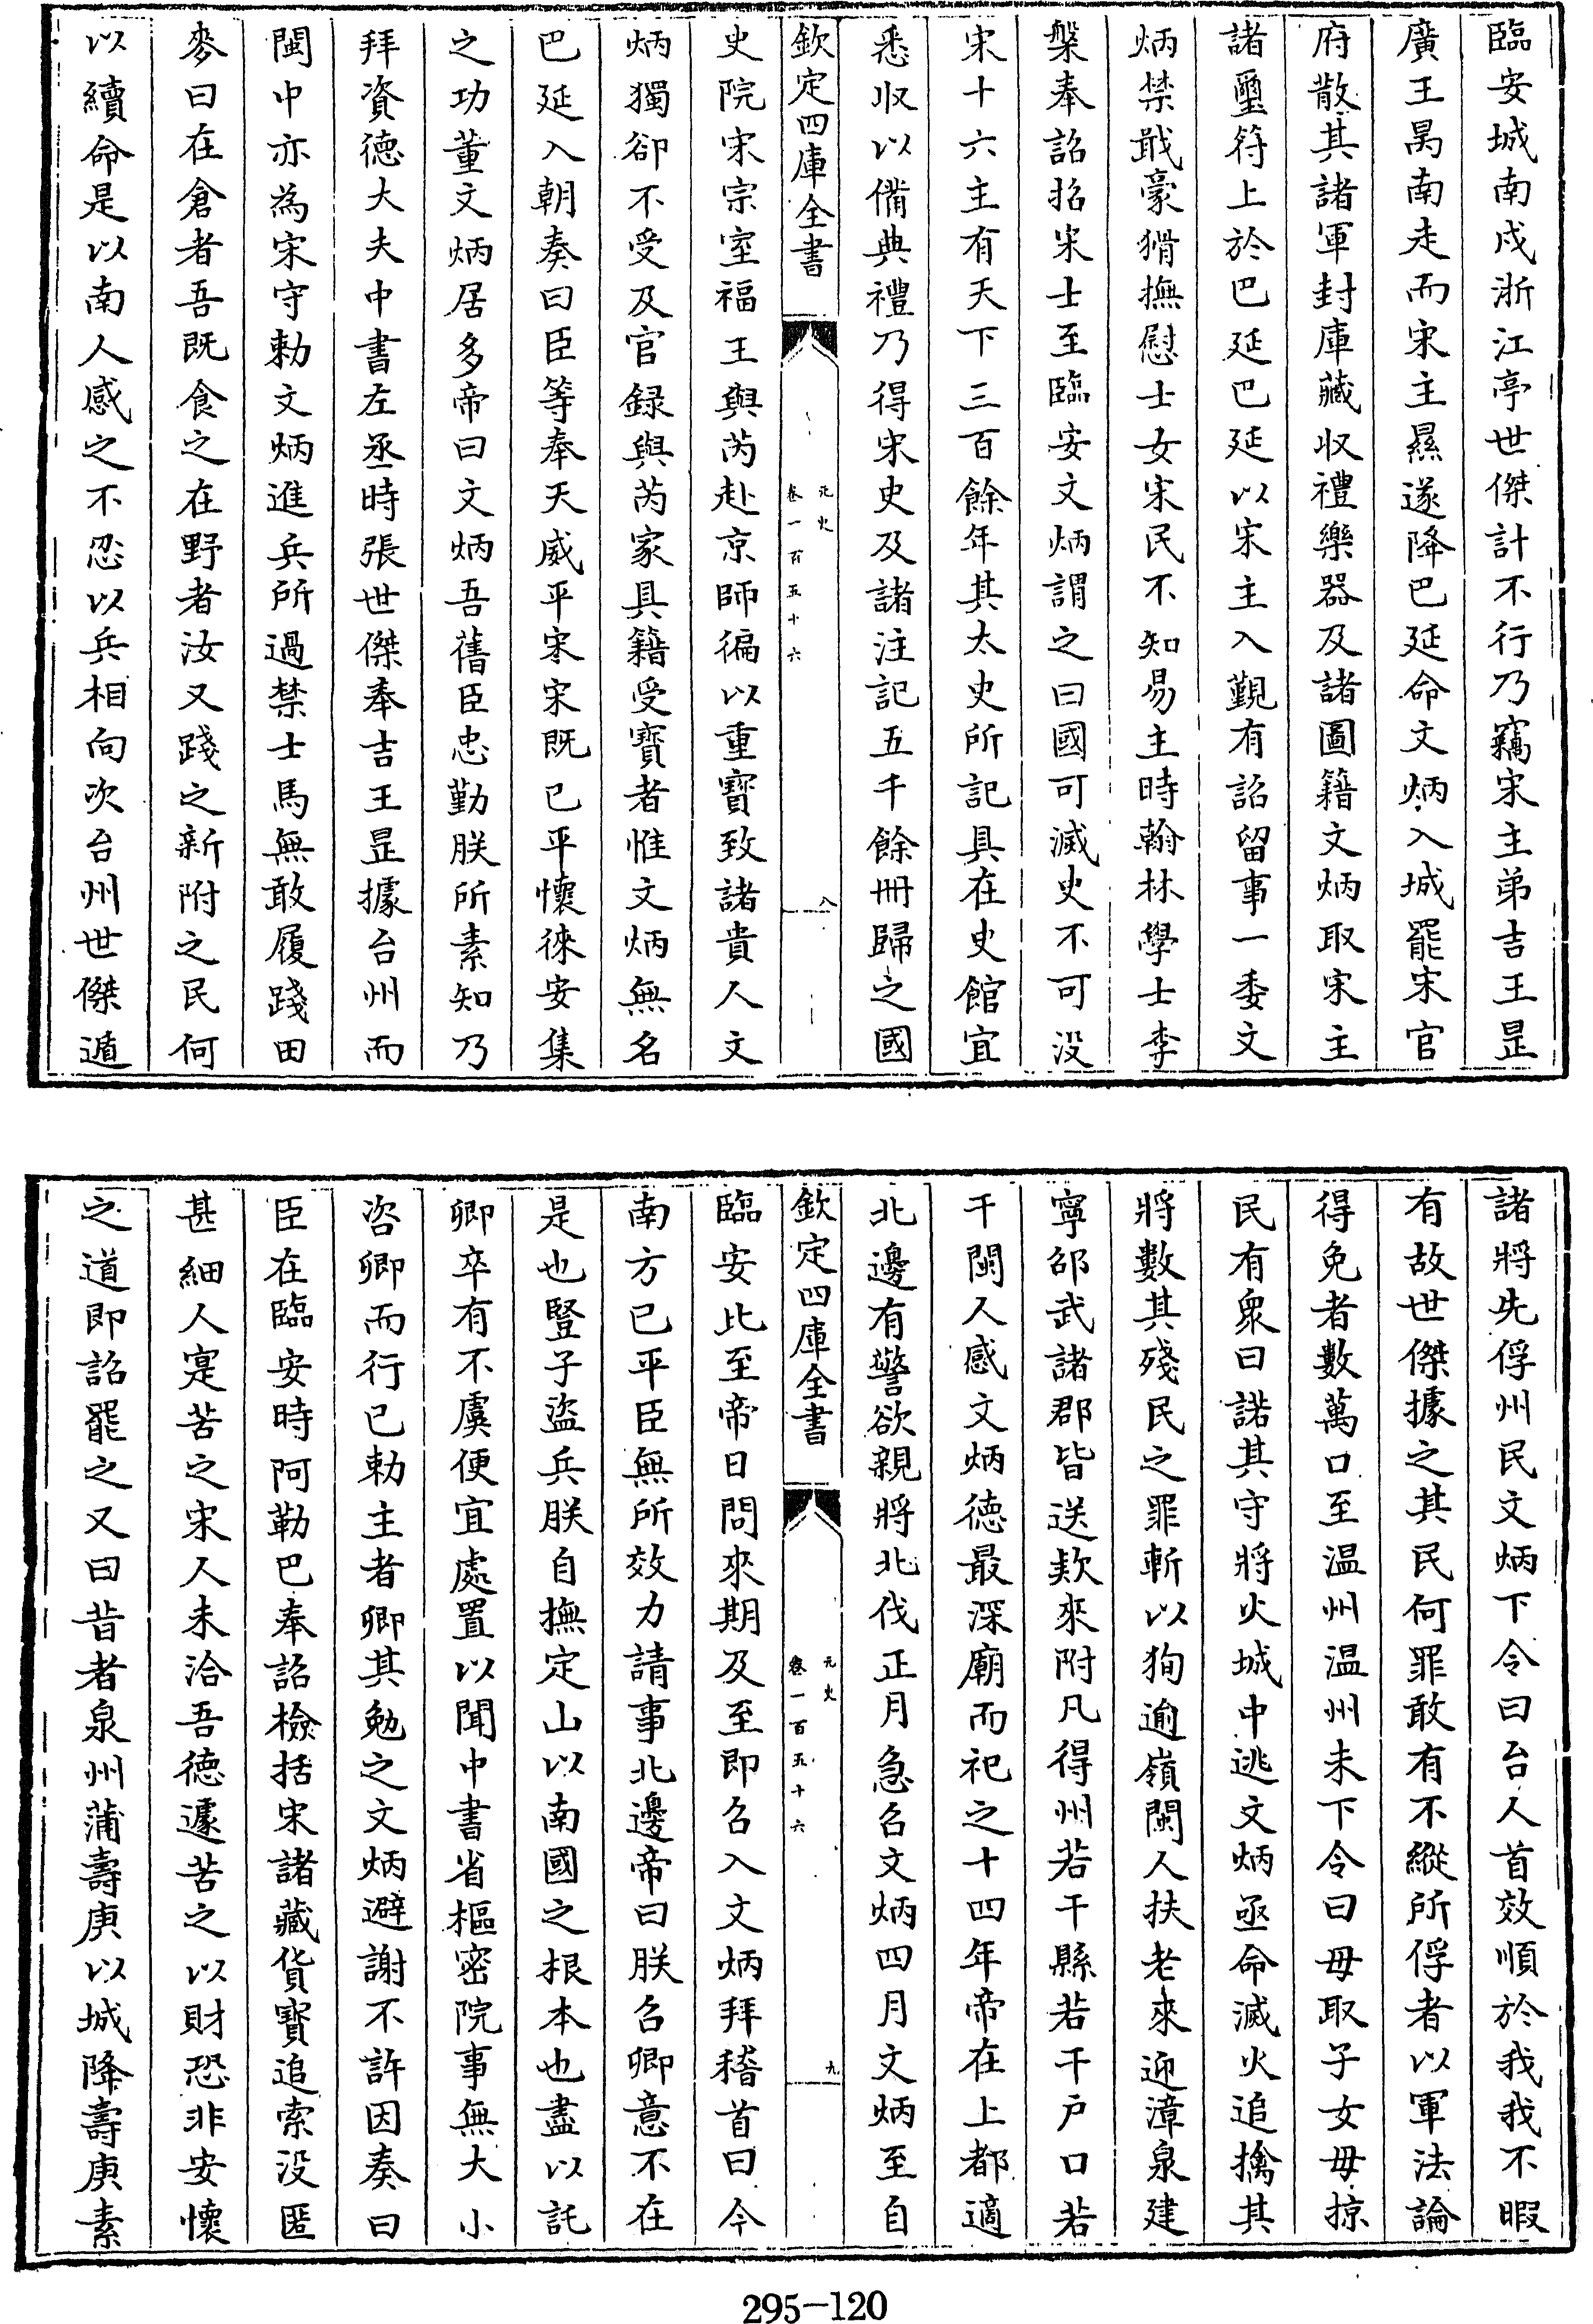 臨安城南戍浙江亭世傑計不行乃竊宋主弟吉王昰
廣王昺南走而宋主㬎遂降巴延命文炳入城罷宋官
府散其諸軍封庫藏收禮樂器及諸圖籍文炳取宋主
諸璽符上於巴延巴延以宋主入覲有詔留事一委文
炳禁戢豪猾撫慰士女宋民不知易主時翰林學士李
槃奉詔招宋士至臨安文炳謂之曰國可滅史不可沒
宋十六主有天下三百餘年其太史所記具在史館宜
悉收以備典禮乃得宋史及諸注記五千餘冊歸之國
欽定四庫全書
元史
卷一百五十六
八
史院宋宗室福王與芮赴京師徧以重寶致諸貴人文
炳獨卻不受及官錄與芮家具籍受寶者惟文炳無名
巴延入朝奏曰臣等奉天威平宋宋既已平懷徠安集
之功董文炳居多帝曰文炳吾舊臣忠勤朕所素知乃
拜資德大夫中書左丞時張世傑奉吉王昰據台州而
閩中亦為宋守勅文炳進兵所過禁士馬無敢履踐田
麥曰在倉者吾既食之在野者汝又踐之新附之民何
以續命是以南人感之不忍以兵相向次台州世傑遁
諸將先俘州民文炳下令曰台人首效順於我我不暇
有故世傑據之其民何罪敢有不縱所俘者以軍法論
得免者數萬口至温州温州未下令曰毋取子女毋掠
民有衆曰諾其守將火城中逃文炳亟命滅火追擒其
將數其殘民之罪斬以徇逾嶺閩人扶老來迎漳泉建
寧邵武諸郡皆送款來附凡得州若干縣若干户口若
干閩人感文炳德最深廟而祀之十四年帝在上都適
北邊有警欲親將北伐正月急召文炳四月文炳至自
欽定四庫全書
元史
卷一百五十六
九
臨安比至帝日問來期及至即召入文炳拜稽首曰今
南方已平臣無所效力請事北邊帝曰朕召卿意不在
是也豎子盜兵朕自撫定山以南國之根本也盡以託
卿卒有不虞便宜處置以聞中書省樞密院事無大小
咨卿而行已勅主者卿其勉之文炳避謝不許因奏曰
臣在臨安時阿勒巴奉詔檢括宋諸藏貨寶追索沒匿
甚細人寔苦之宋人未洽吾德遽苦之以財恐非安懷
之道即詔罷之又曰昔者泉州蒲壽庚以城降壽庚素
295-120